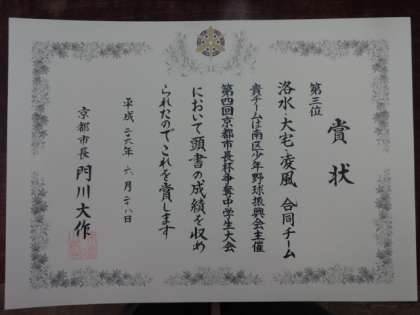 賞状
第三位
洛水・大宅・凌風 合同チーム
貴チームは南区少年野球振興会主催
第四回京都市長杯争奪中学生大会
において頭書の成績を収め
られたのでこれを賞します
平成二十六年六月二十八日
京都市長 門川大作